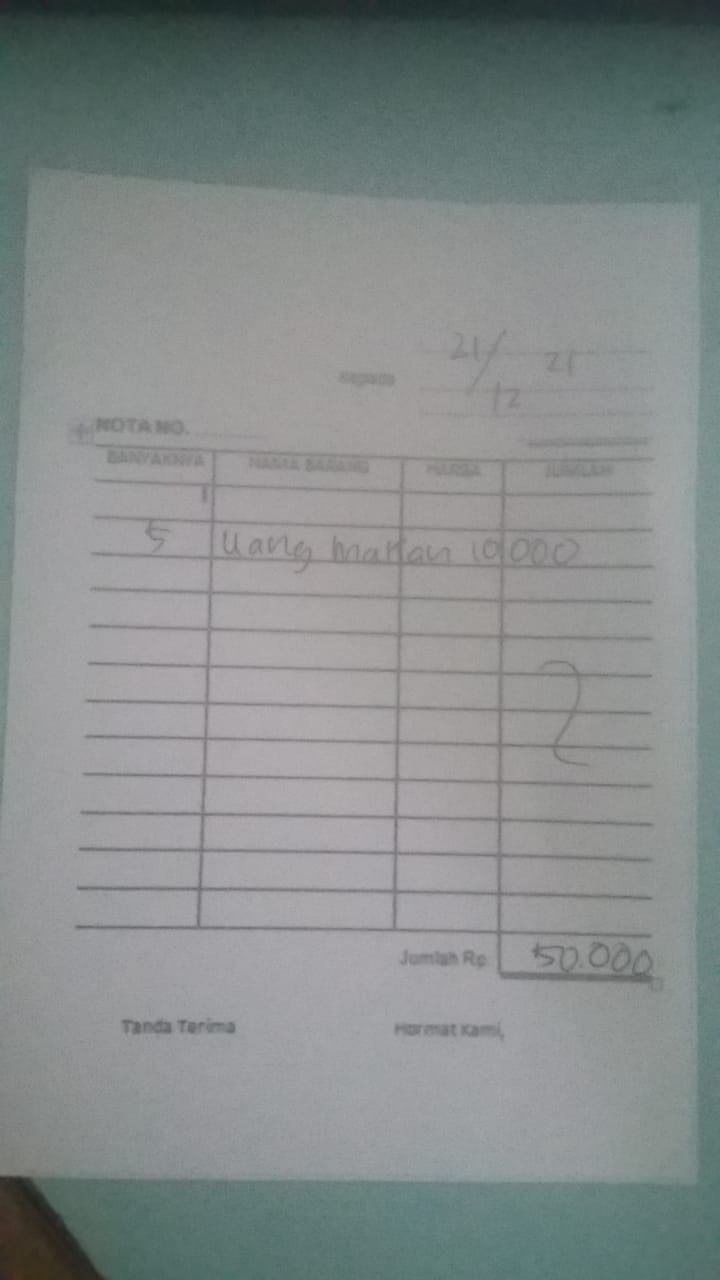 21/12 21
Kepada
NOTA NO.
BANYAKNYA NAMA BARANG HARGA JUMLAH
5 Uang makan 10.000
Jumlah Rp 50.000
Tanda Terima Hormat Kami,